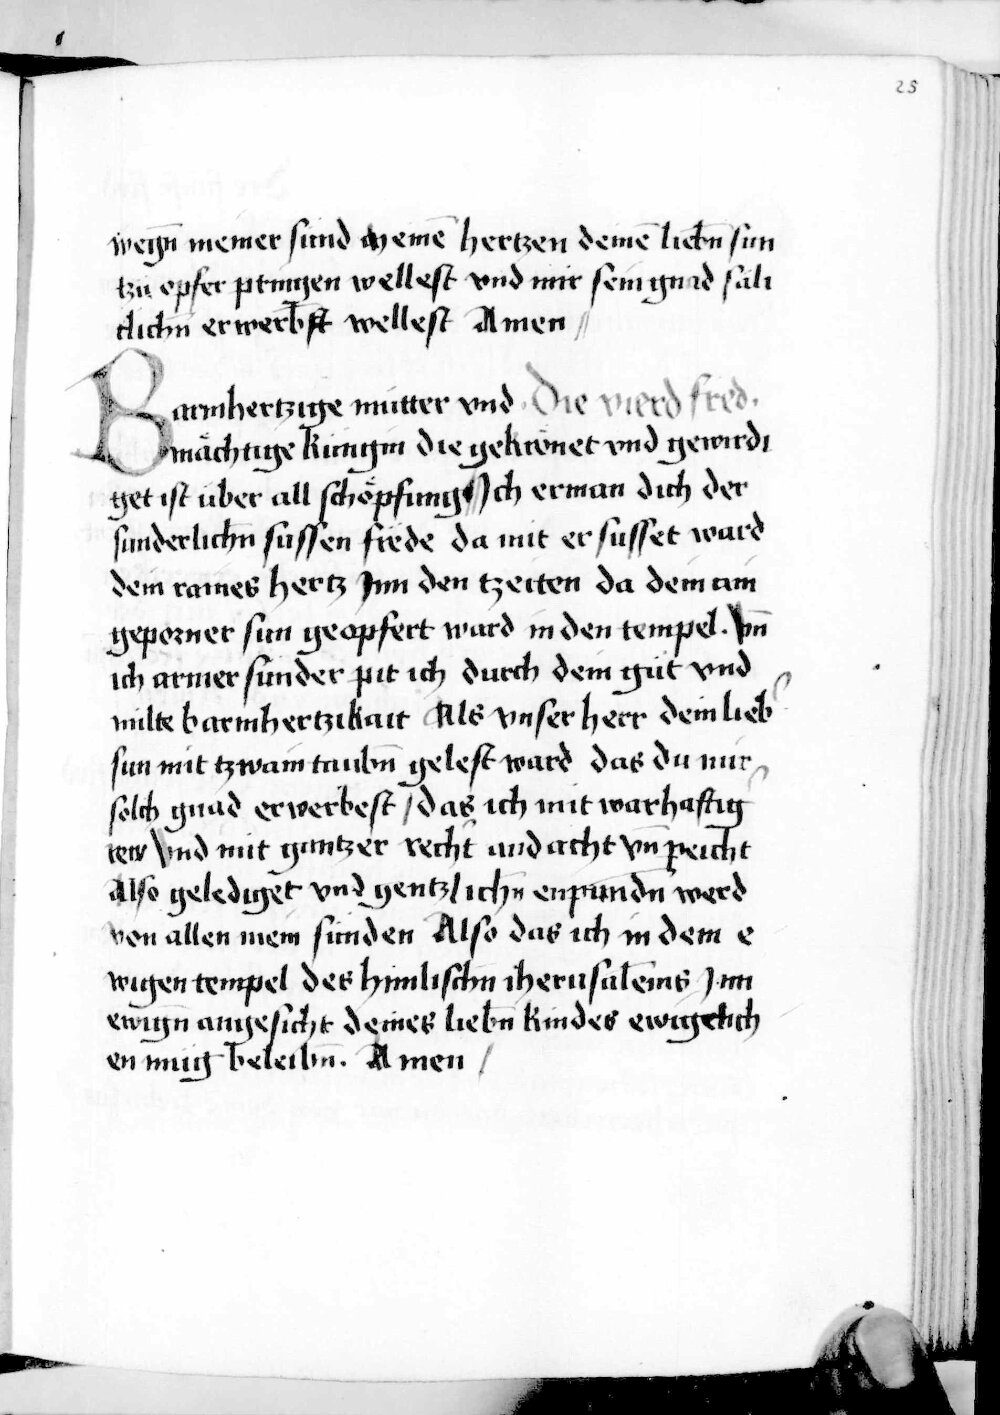 25
weign̄ meiner sünd Meinē hertzen deinē liebn̄ sun
tzu opfer pringen wellest vnd mir sein gnad säli
clichn̄ erwerbst wellest Amen
Barmhertzige mutter vnd · Die vierd fred ·
mächtige künigin die gekrönet vnd gewirdi
get ist über all schöpfung Jch erman dich der
sunderlichn̄ süssen frëde da mit ersusset ward
dein raines hertz Jnn den tzeiten da dein ain
geporner sun geopfert ward in den tempel. Vn̄
ich armer sunder pit ich durch dein güt vnd
milte barmhertzikait Als vnser herr dein lieb
sun mit tzwain taubn̄ gelest ward das du mir
solch gnad erwerbest / das ich mit warhaftig
rew Vnd mit gantzer recht andacht vn̄ peicht
Also gelediget vnd gentzlichn̄ enpundn̄ werd
von allen mein sünden Also das ich in dem e
wigen tempel des himlischn̄ iherusalems Jnn
ewign̄ angesicht deines liebn̄ kindes ewigclich
en müg beleibn̄. Amen /